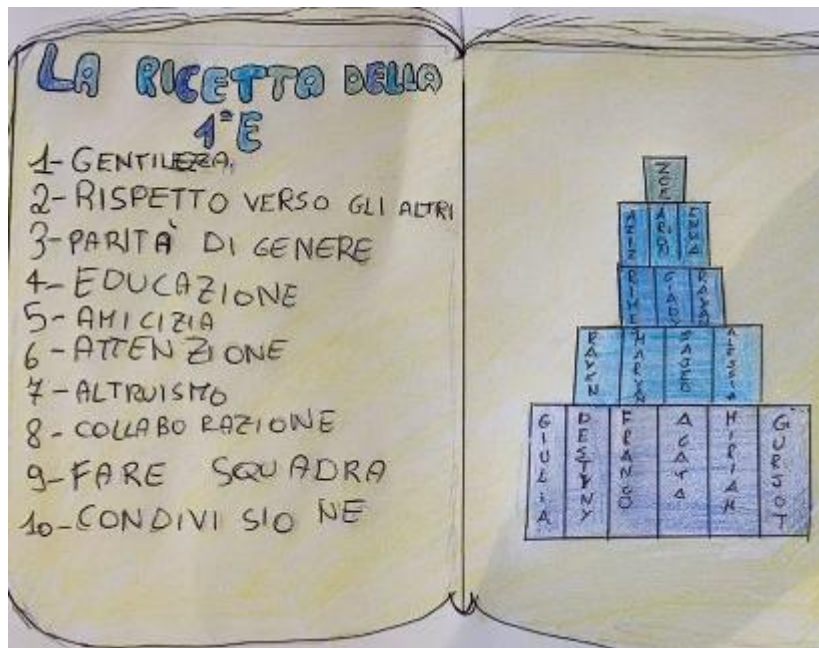 LA RICETTA DELLA
1ªE
1- GENTILEZZA,
2- RISPETTO VERSO GLI ALTRI
3- PARITÀ DI GENERE
4- EDUCAZIONE
5- AMICIZIA
6- ATTENZIONE
7- ALTRUISMO
8- COLLABORAZIONE
9- FARE SQUADRA
10- CONDIVISIONE
ZOE
AZIZ
RAYEN
SAJED
ALESSIA
GIULIA
DESTINY
FRANCO
AGATA
MIRIAM
GURJOT